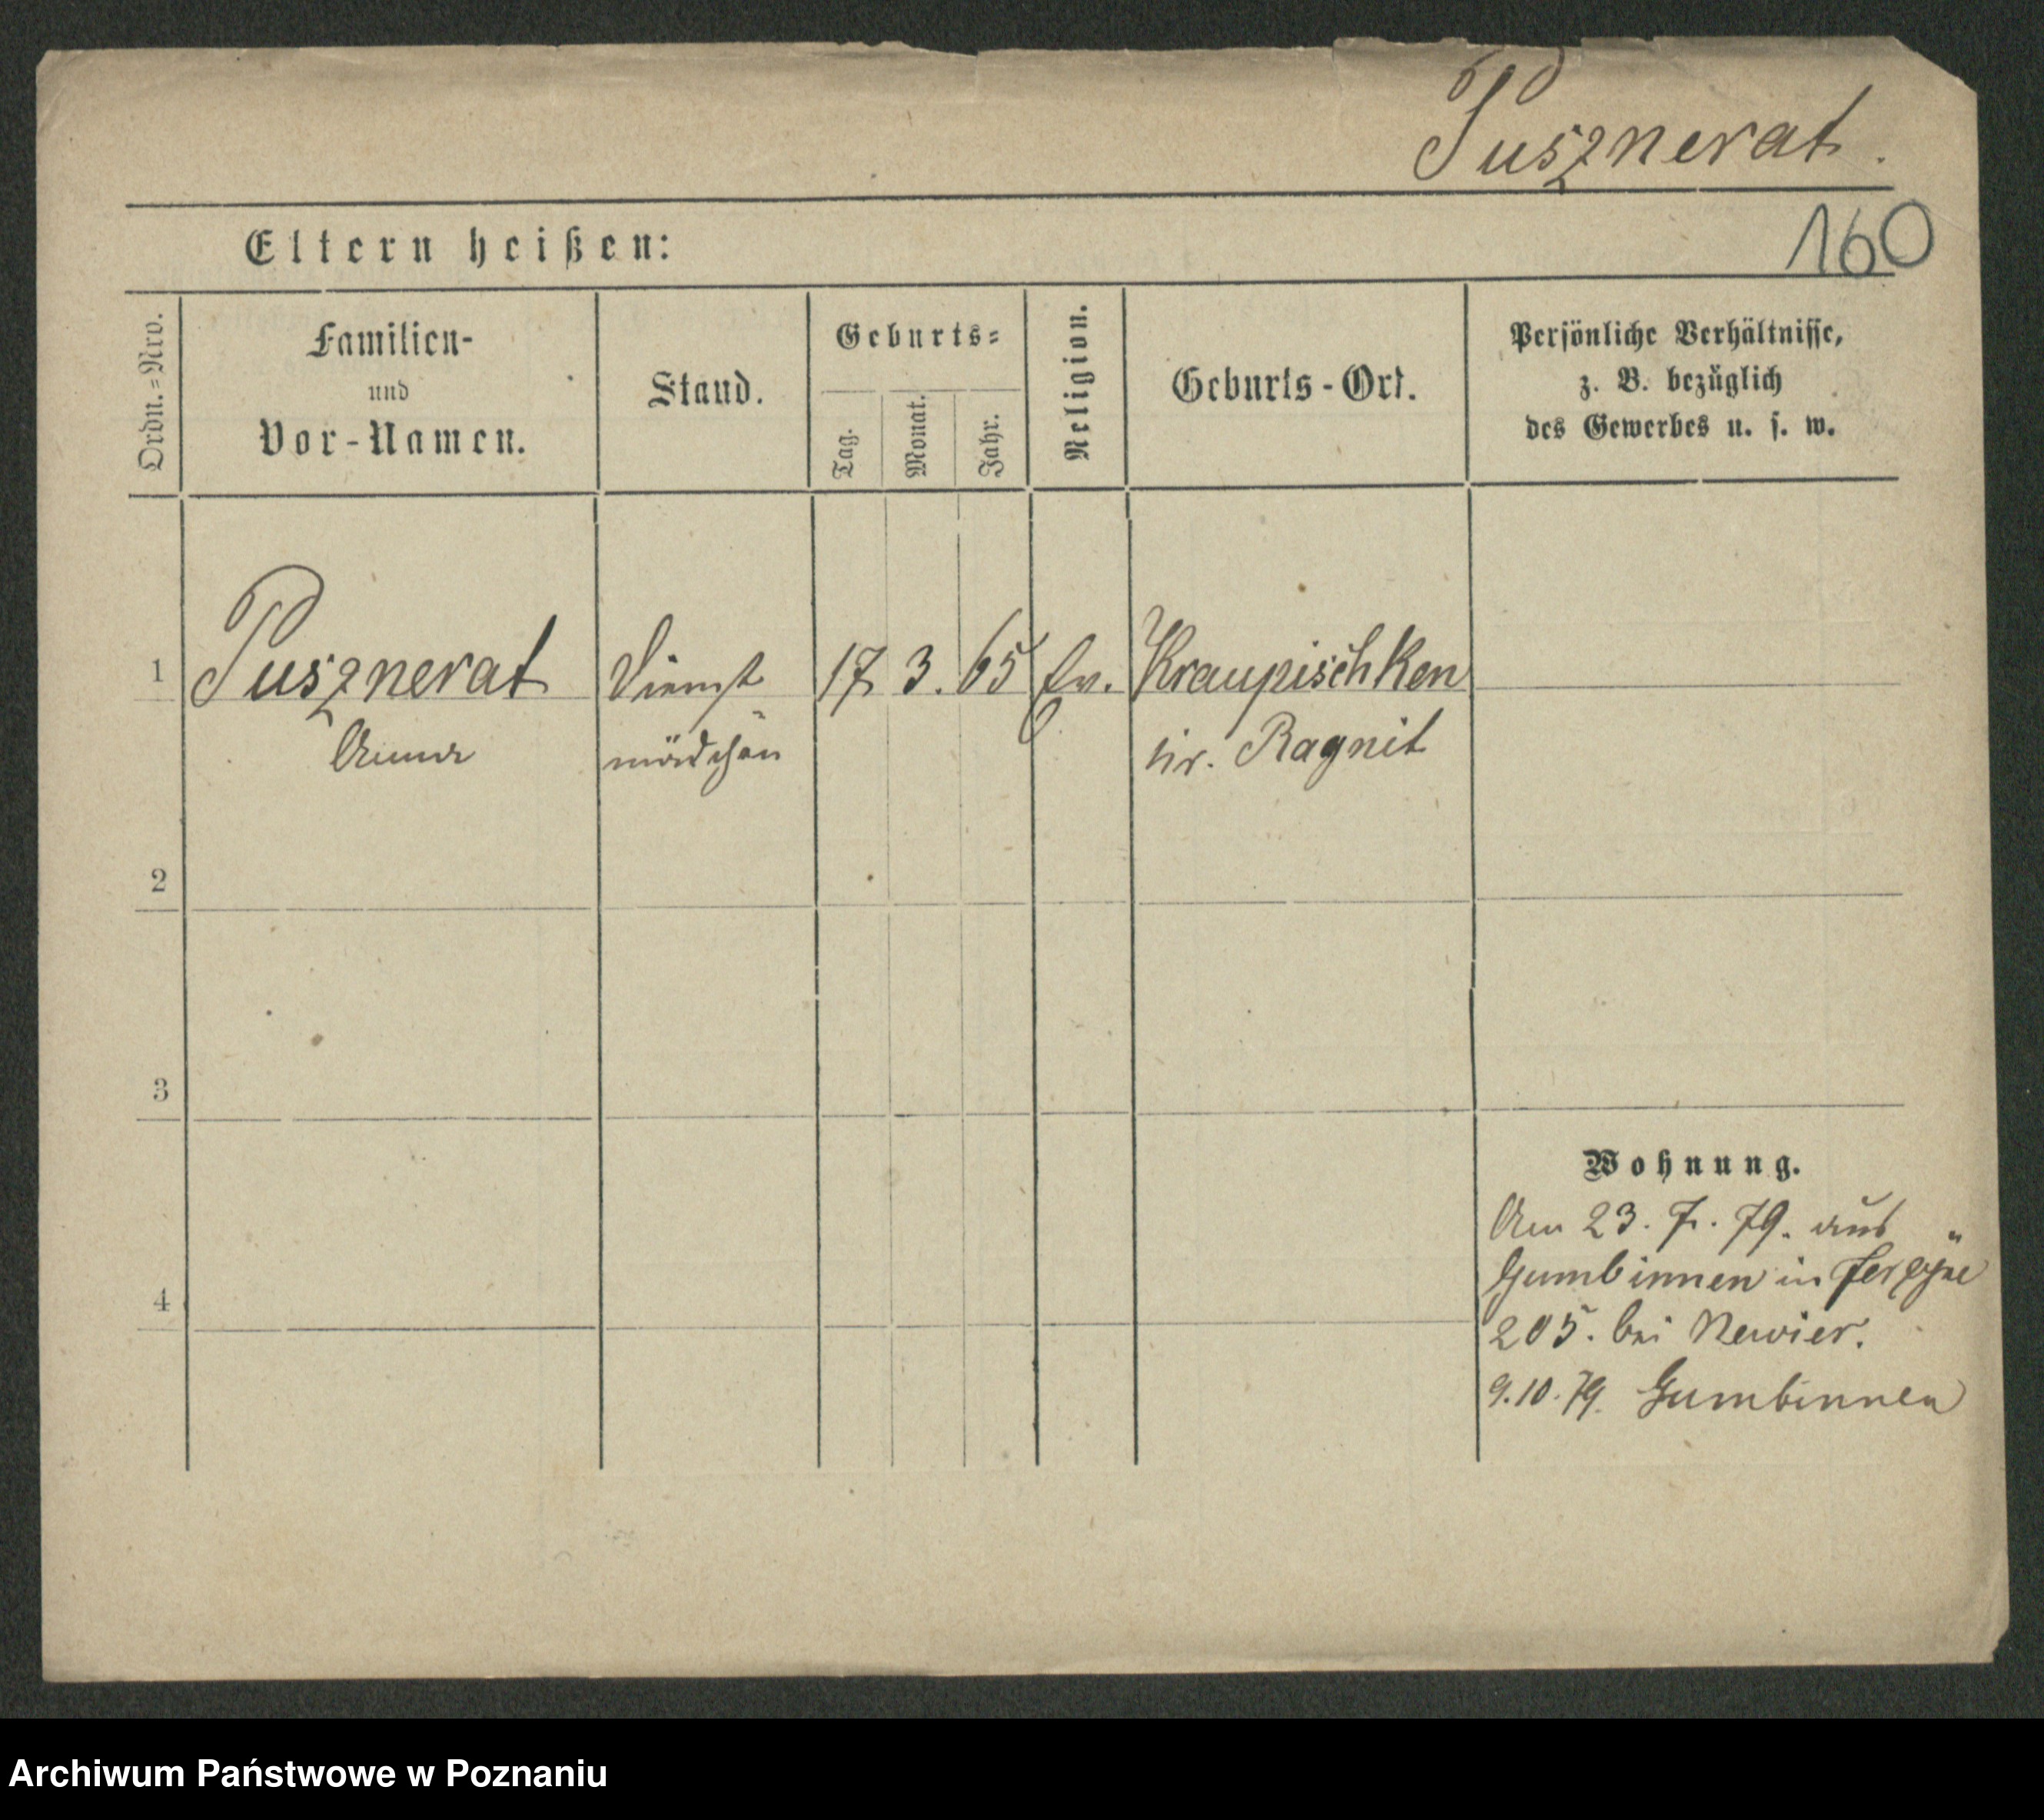 Pusznerat.
160
Eltern heißen:
Ordn.=Nro.
Familien-
und
Vor-Namen.
Stand.
Geburts=
Tag.
Monat.
Jahr.
Religion.
Geburts-Ort.
Persönliche Verhältnisse,
z. B. bezüglich
des Gewerbes u. s. w.
1 Pusznerat Dienst 17 3. 65 Ev. Kraupischken
Anna mädchen Kr. Ragnit
2
3
Wohnung.
Am 23. 7. 79. aus
Gumbinnen in
4
205. bei Newier.
9.10.79. Gumbinnen
Archiwum Państwowe w Poznaniu